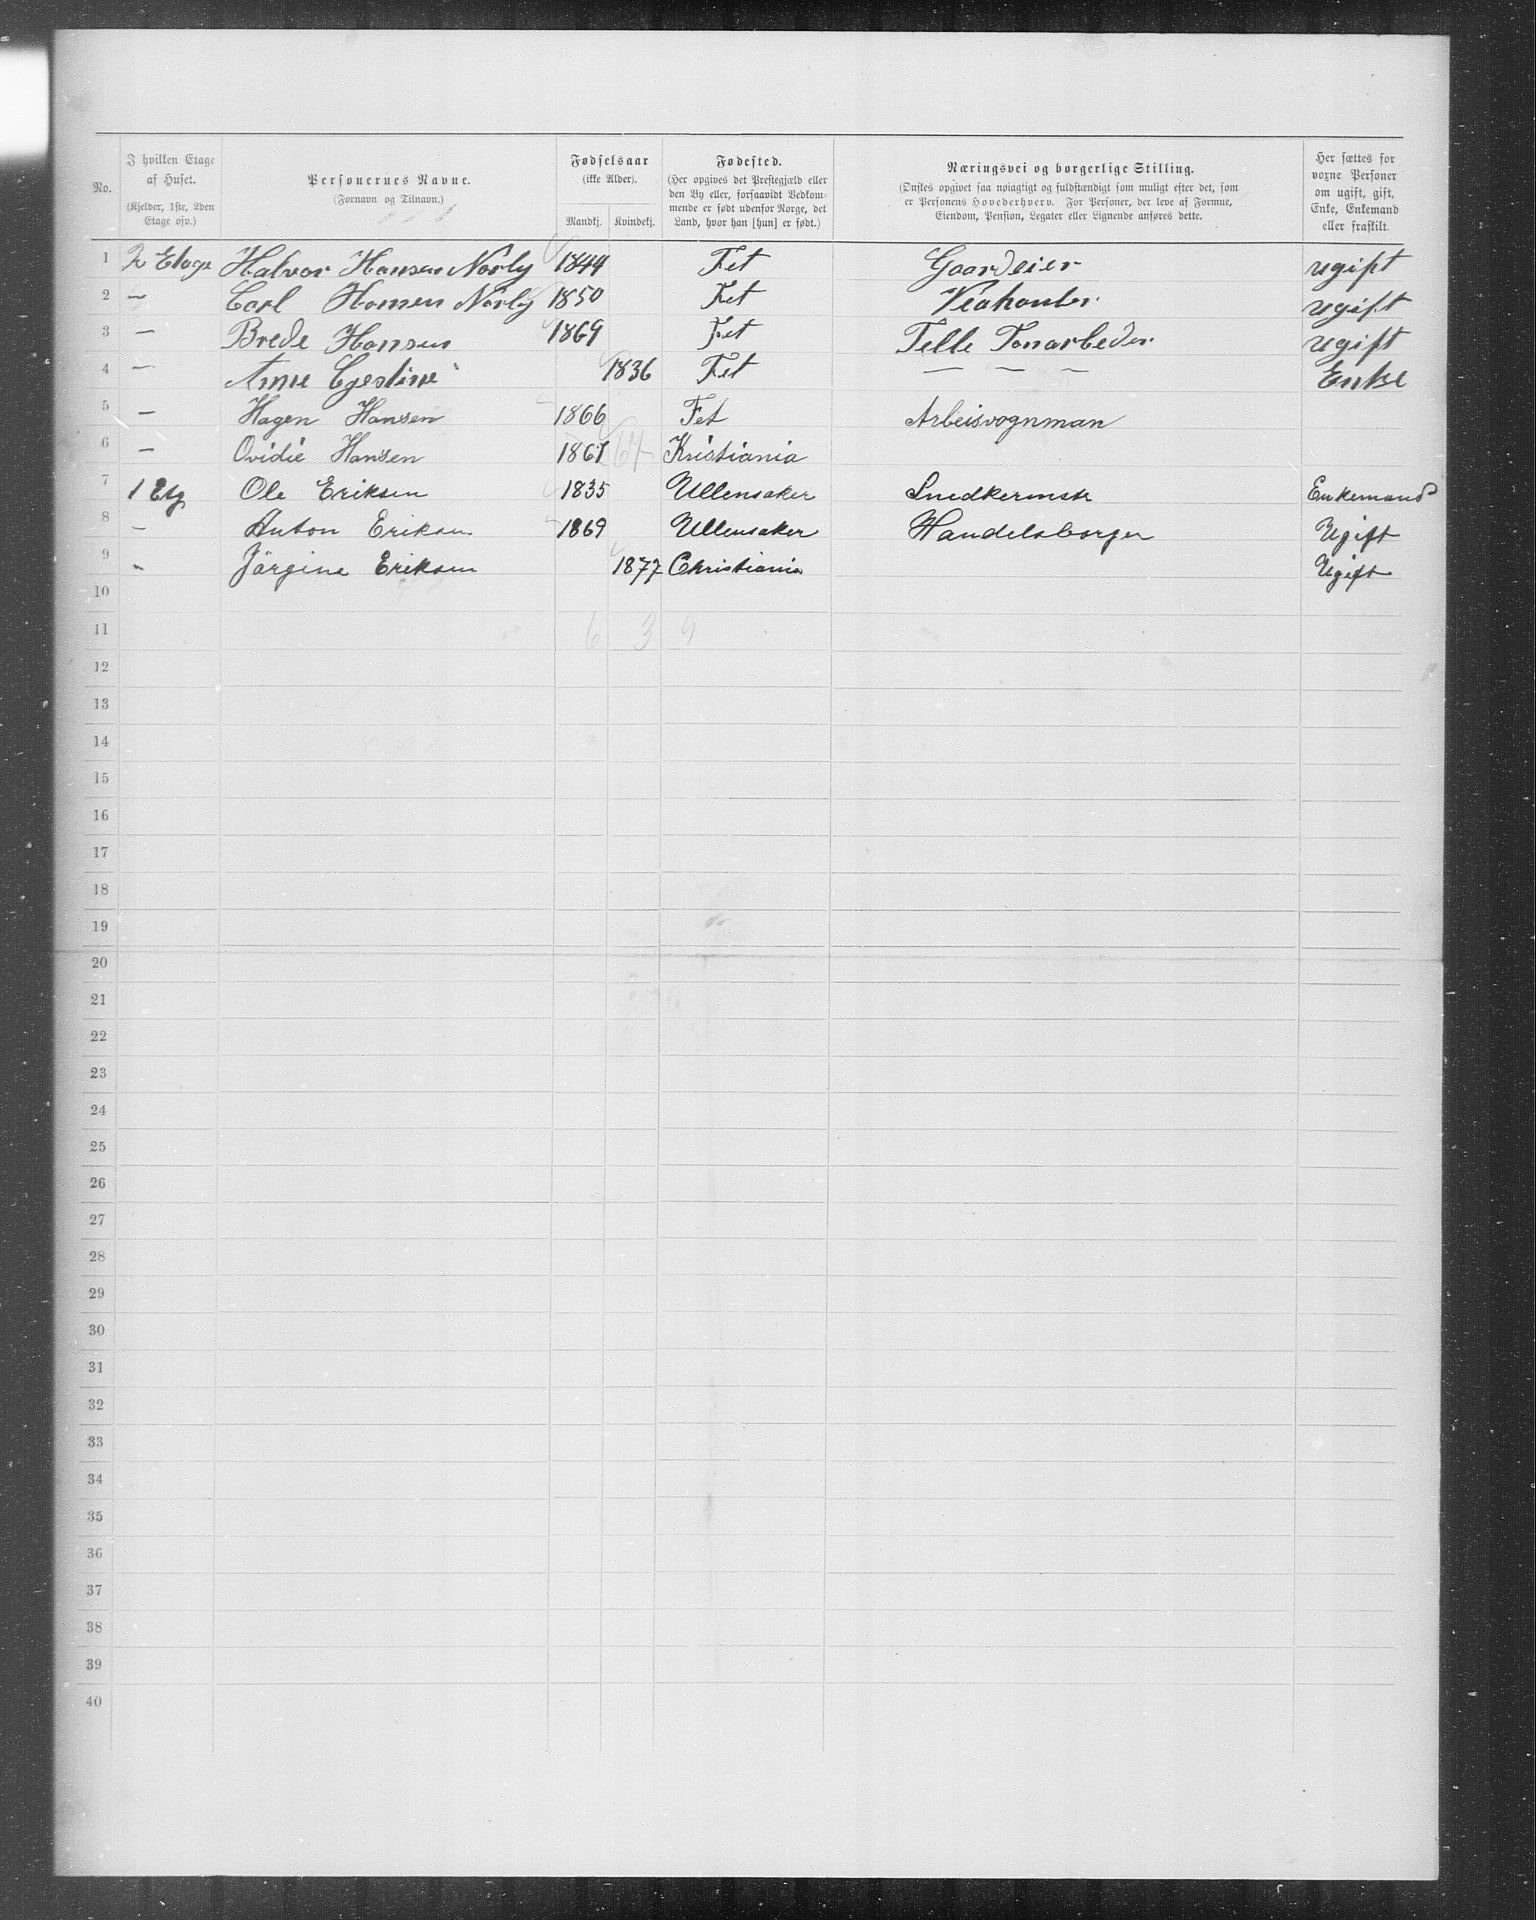 No.
I hvilken Etage af Huset.
(Kjelder, 1ste, 2den Etage osv.)
Personernes Navne.
(Fornavn og Tilnavn.)
Fødselsaar
(ikke Alder).
Mandkj. Kvindekj.
Fødested.
(Her opgives det Prestegjæld eller
den By eller, forsaavidt Vedkom-
mende er født udenfor Norge, det
Land, hvor han [hun] er født.)
Næringsvei og borgerlige Stilling.
(Ønskes opgivet saa nøiagtigt og fuldstændigt som muligt efter det, som
er Personens Hovederhverv. For Personer, der leve af Formue,
Eiendom, Pension, Legater eller Lignende anføres dette.
Her sættes for
voxne Personer
om ugift, gift,
Enke, Enkemand
eller fraskilt.
1 2 Etage Halvor Hansen Norby 1844 Fet Gaardeier ugift
2 — Carl Hansen Norby 1850 Fet ugift
3 — Brede Hansen 1869 Fet Telle Tonarbeder ugift
4 — Anne 1836 Fet — — — Enke
5 — Hagen Hansen 1866 Fet Arbeisvognman
6 — Ovidie Hansen 1867 67 Kristiania
7 1 Etg Ole Eriksen 1835 Ullensaker Snedkermstr Enkemand
8 — Anton Eriksen 1869 Ullensaker Handelsborger Ugift
9 - Jörgine Eriksen 1877 Christiania Ugift
10
11 6 3 9
12
13
14
15
16
17
18
19
20
21
22
23
24
25
26
27
28
29
30
31
32
33
34
35
36
37
38
39
40